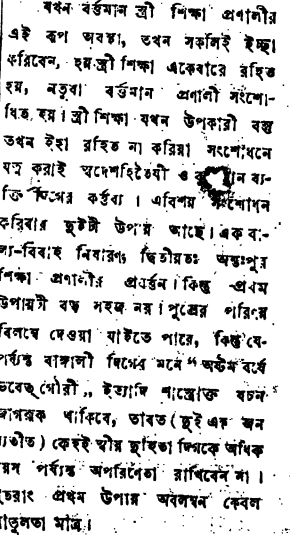 যখন বর্ত্তমান স্ত্রী শিক্ষা প্রণালীর
এই রূপ অবস্থা, তখন সকলেই ইচ্ছা
করিবেন, হয় স্ত্রী শিক্ষা একেবারে রহিত
হয়, নতুবা বর্ত্তমান প্রণালী সংশো-
ধিত হয়। স্ত্রী শিক্ষা যখন উপকারী বস্তু
তখন ইহা রহিত না করিয়া সংশোধনে
যত্ন করাই স্বদেশহিতৈষী ও ব্য-
ক্তি দিগের কর্ত্তব্য। এবিশয় সংশোধন
করিবার দুইটী উপায় আছে। এক বা-
ল্য-বিবাহ নিবারণ; দ্বিতীয়তঃ অন্তঃপুর
শিক্ষা প্রণালীর প্রবর্ত্তন। কিন্তু প্রথম
উপায়টী বড় সহজ নয়। পুত্রের পরিণয়
বিলম্বে দেওয়া যাইতে পারে, কিন্তু যে-
পর্য্যন্ত বাঙ্গালী দিগের মনে “অষ্টম বর্ষে
ভবেত্ গৌরী„ ইত্যাদি শাস্ত্রোক্ত বচন
জাগরূক থাকিবে, তাবত (দুই এক জন
ব্যতীত) কেহই স্বীয় দুহিতা দিগকে অধিক
বয়স পর্য্যন্ত অপরিণেতা রাখিবেন না।
সুতরাং প্রথম উপায় অবলম্বন কেবল
বাতুলতা মাত্র।